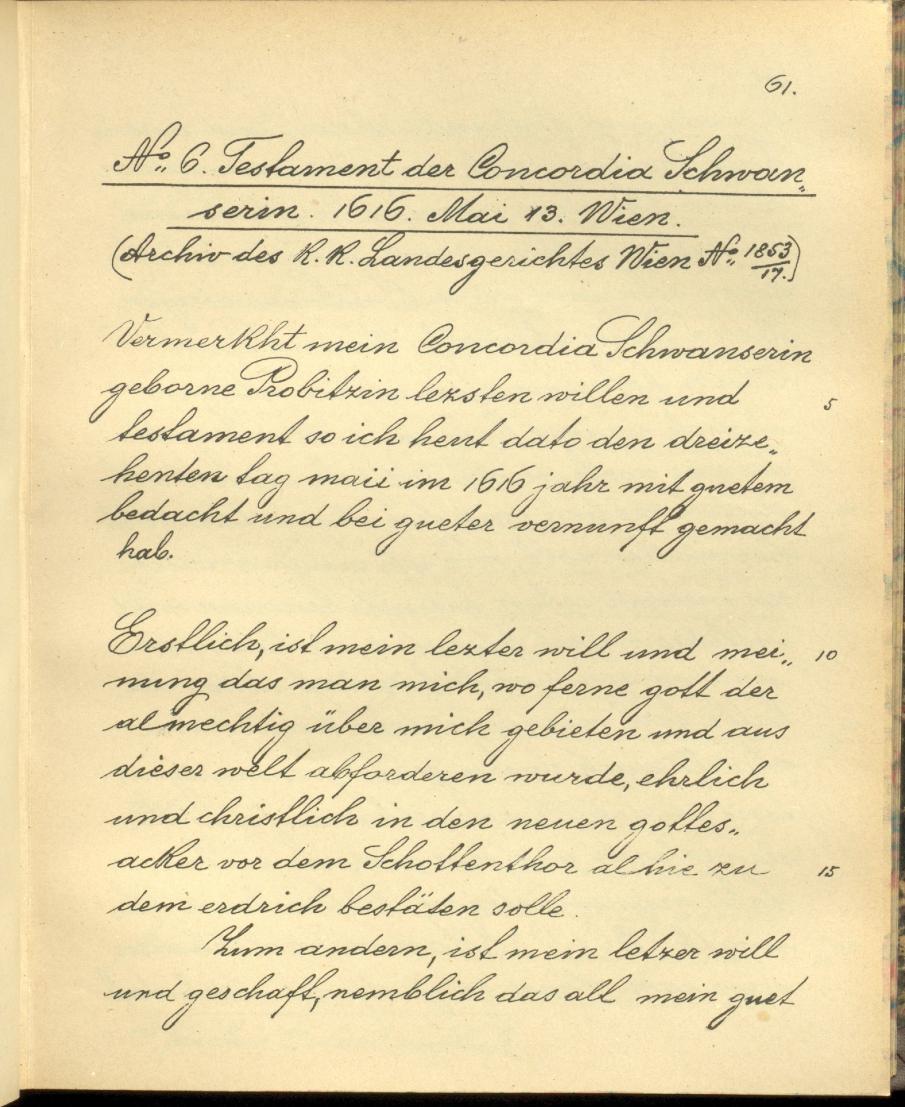 61.
No. 6. Testament der Concordia Schwan„
serin. 1616. Mai 13. Wien.
(Archiv des K. K. Landesgerichtes Wien No. 1853/17.)
Vermerkht mein Concordia Schwanserin
geborne Probitzin lezsten willen und 5
testament so ich heut dato den dreize„
henten tag maii im 1616 jahr mit guetem
bedacht und bei gueter vernunft gemacht
hab.
Erstlich, ist mein lezter will und mei„ 10
nung das man mich, wo ferne gott der
almechtig über mich gebieten und aus
dieser welt abforderen wurde, ehrlich
und christlich in den neuen gottes„
acker vor dem Schottenthor alhie zu 15
dem erdrich bestäten solle.
Zum andern, ist mein letzer will
und geschaft, nemblich das all mein guet